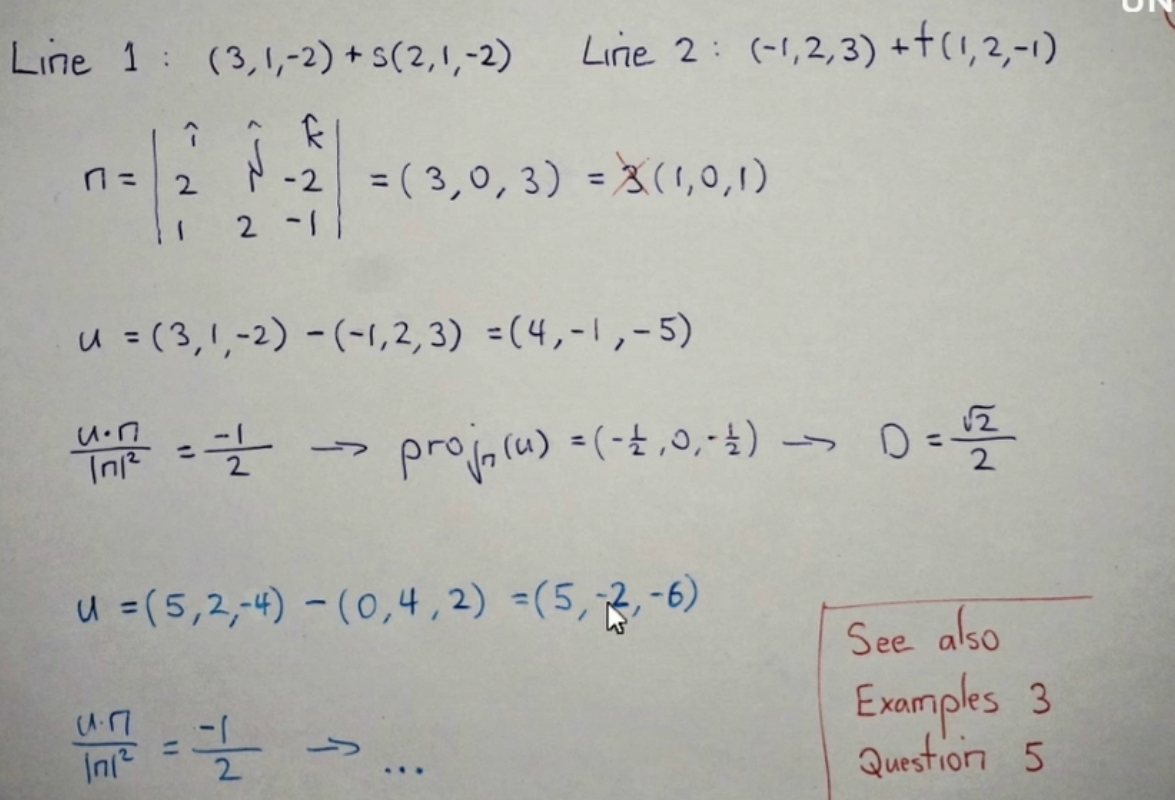 UN
Line 1 : (3,1,-2) + s(2,1,-2) Line 2 : (-1,2,3) + t(1,2,-1)
n = | î ĵ k̂ |
| 2 1 -2 | = (3,0,3) = 3(1,0,1)
| 1 2 -1 |
u = (3,1,-2) - (-1,2,3) = (4,-1,-5)
u·n/|n|² = -1/2 → projₙ(u) = (-½,0,-½) → D = √2/2
u = (5,2,-4) - (0,4,2) = (5,-2,-6)
u·n/|n|² = -1/2 → ...
See also
Examples 3
Question 5